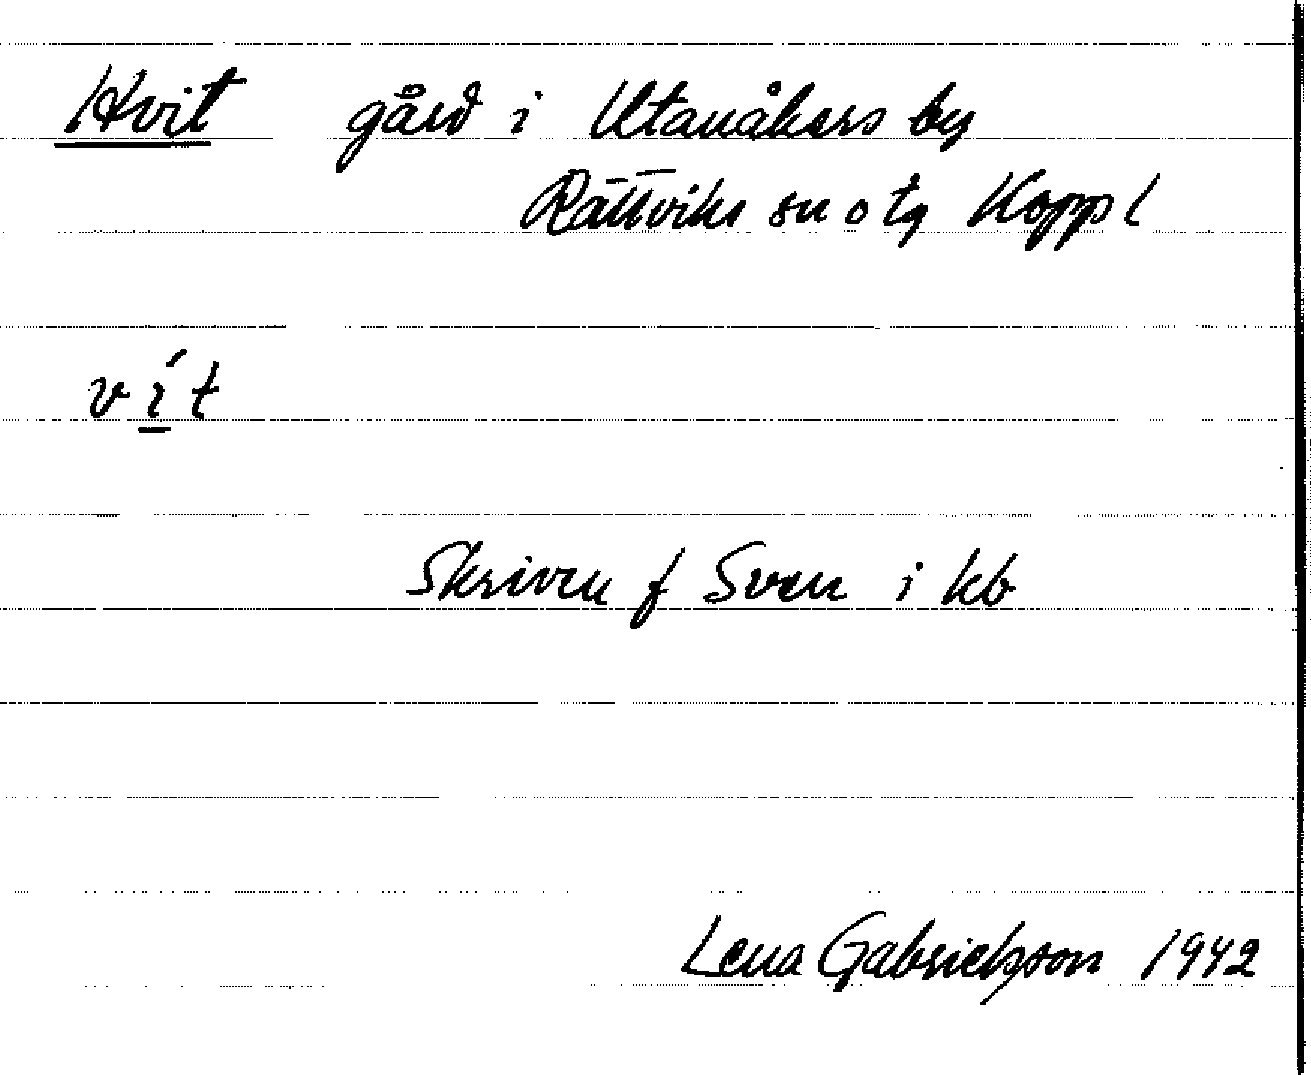 Hvit gård i Utanåkers by
Rättviks sn o tg Kopp l
v í t
Skriven f Sven i kb
Lena Gabrielsson 1942